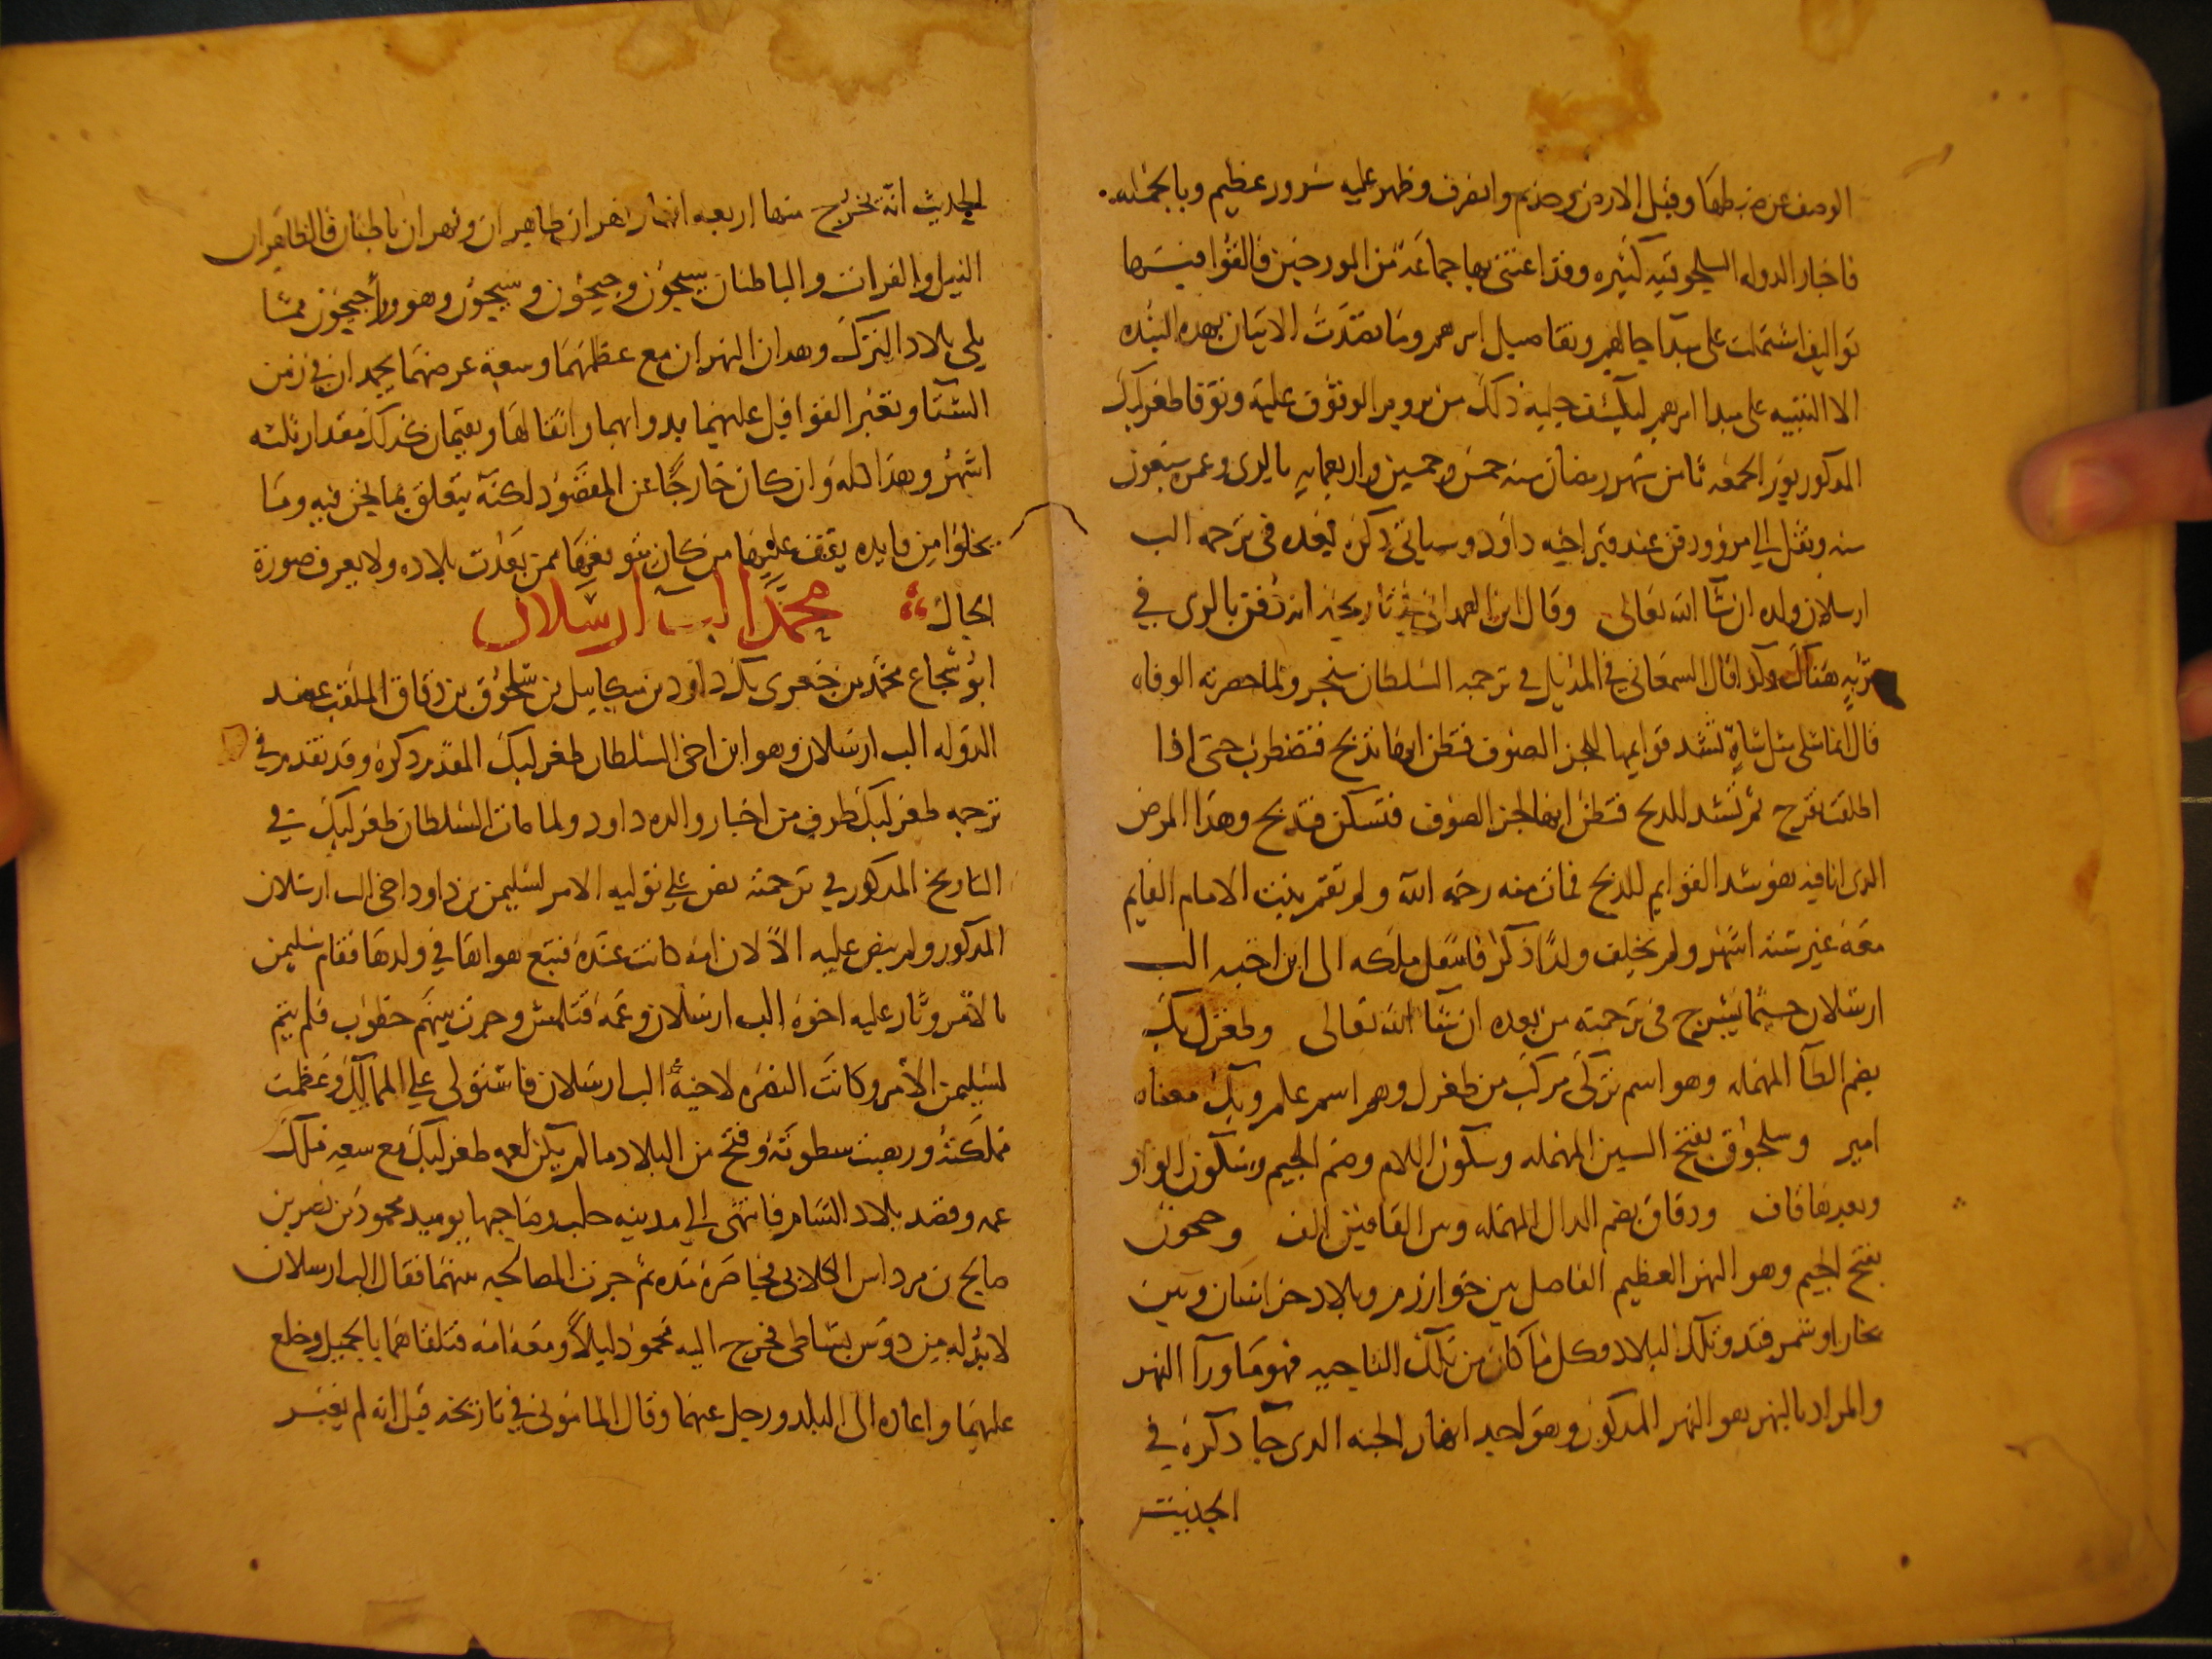 الوصف عن ضبطها وقبل الارض وخدم وانصرف وظهر عليه سرور عظيم وبالجمله
فاخبار الدوله السلجوقيه كثيره وقد اعتنى بها جماعة من المورخين فالفوا فيها
تواليف اشتملت على حالهم وتفاصيل امرهم وما قصدت الاتيان بهذه النبذه
الا التنبيه على مبدا امرهم ليكشف جلية ذلك من يروم الوقوف عليه وتوفا طغرلبك
المذكور يوم الجمعه ثامن شهر رمضان سنه خمس وخمسين واربعمايه بالري وعمره سبعون
سنه ونقل الى مرو ودفن عند قبر اخيه داود وسياتي ذكره بعده في ترجمه الب
ارسلان ولده ان شا الله تعالى وقال ابن الهمداني في تاريخه انه دفن بالري في
تربه هناك وكذا قال السمعاني في الذيل في ترجمه السلطان سنجر ولما حضرته الوفاه
قال انما مثلي مثل شاة تشد قوايمها لجز الصوف فتظن انها تذبح فتضطرب حتى اذا
اطلقت تفرح ثم تشد للذبح فتظن انها لجز الصوف فتسكن فتذبح وهذا المرض
الذي انا فيه هو شد القوايم للذبح فمات منه رحمه الله ولم تقم بنت الامام القايم
معه غير ستة اشهر ولم يخلف ولدا ذكرا فانتقل ملكه الى ابن اخيه الب
ارسلان حسبما يشرح في ترجمته من بعده ان شا الله تعالى وطغرل بك
بضم الطآ المهمله وهو اسم تركي مركب من طغرل وهو اسم علم وبك معناه
امير وسلجوق بفتح السين المهمله وسكون اللام وضم الجيم وسكون الواو
وبعدها قاف ودقاق بضم الدال المهمله وبين القافين الف وجيحون
بفتح الجيم وهو النهر العظيم الفاصل بين خوارزم وبلاد خراسان وبين
بخارا وسمرقند وتلك البلاد وكل ما كان من تلك الناحيه فهو ما ورآ النهر
والمراد بالنهر هو النهر المذكور وهو احد انهار الجنه الذي جآ ذكره في
الحديث
الحديث انه يخرج منها اربعه انهار نهران ظاهران ونهران باطنان فالظاهران
النيل والفرات والباطنان سيحون وجيحون وسيحون وهو ورآ جيحون مما
يلي بلاد الترك وهذان النهران مع عظمهما وسعة عرضهما يجمدان في زمن
الشتا وتعبر القوافل عليهما بدوابها واثقالها ويقيمان كذلك مقدار ثلثه
اشهر وهذا كله وان كان خارجا عن المقصود لكنه يتعلق بما نحن فيه وما
يخلوا من فايده يقف عليها من كان يتوقعها ممن بعدت بلاده ولا يعرف صورة
الحال محمد الب ارسلان
ابو شجاع محمد بن جغري بك داود بن ميكاييل بن سلجوق بن دقاق الملقب عضد
الدوله الب ارسلان وهو ابن اخي السلطان طغرلبك المقدم ذكره وقد تقدم في
ترجمه طغرلبك طرف من اخبار والده داود ولما مات السلطان طغرلبك في
التاريخ المذكور في ترجمته نص على توليه الامر لسليمن بن داود اخي الب ارسلان
المذكور ولم ينص عليه الا لان امه كانت عنده فتبع هواها في ولدها فقام سليمن
بالامر وثار عليه اخوه الب ارسلان وعمه قتلمش وجرت بينهم خطوب فلم يتم
لسليمن الامر وكانت النصره لاخيه الب ارسلان فاستولى على الممالك وعظمت
مملكته ورهبت سطوته وفتح من البلاد ما لم يكن لعمه طغرلبك مع سعه ملك
عمه وقصد بلاد الشام فانتهى الى مدينه حلب وصاحبها يوميد محمود بن نصر بن
صالح بن مرداس الكلابي فحاصره مده ثم جرت المصالحه بينهما فقال الب ارسلان
لا بد له من دوس بساطي فخرج اليه محمود ليلا ومعه امه فتلقاهما بالجميل وخلع
عليهما واعاده الى البلد ورحل عنهما وقال الماموني في تاريخه قيل انه لم يعبر